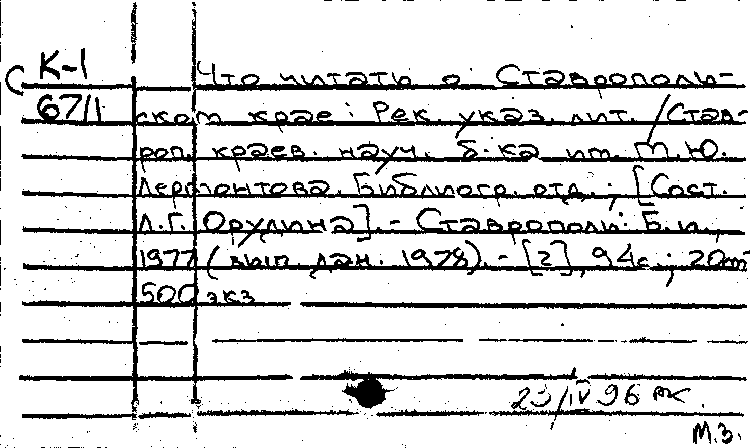 К-1 Что читать о Ставрополь-
67/1 ском крае: Рек. указ. лит. /Став-
роп. краев. науч. б-ка им. М.Ю.
Лермонтова. Библиогр. отд.; [Сост.
Л.Г. Орудина]. - Ставрополь: Б.и.,
1977 (вып. дан. 1978). - [2], 94с.; 20см
500 экз
23/IV 96
М.З.